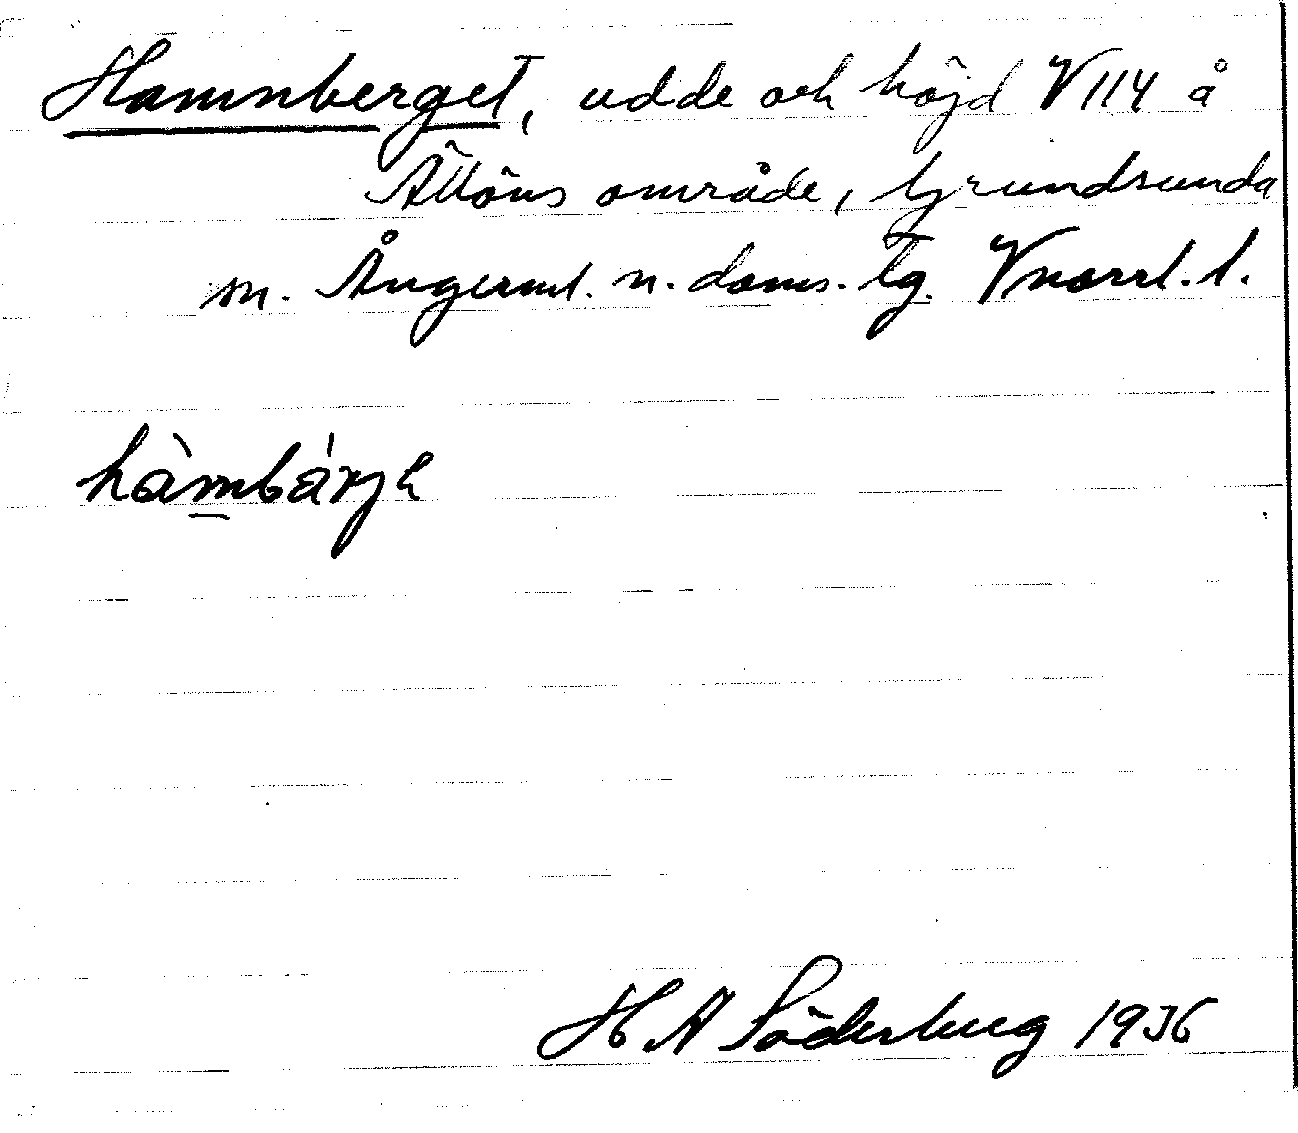 Hamnberget, udde och höjd V 114 å
Ällöns område, Grundsunda
sn. Ångerml. n. doms. lg. Vnorrl. l.
hàmbárjè
H A Söderberg 1936